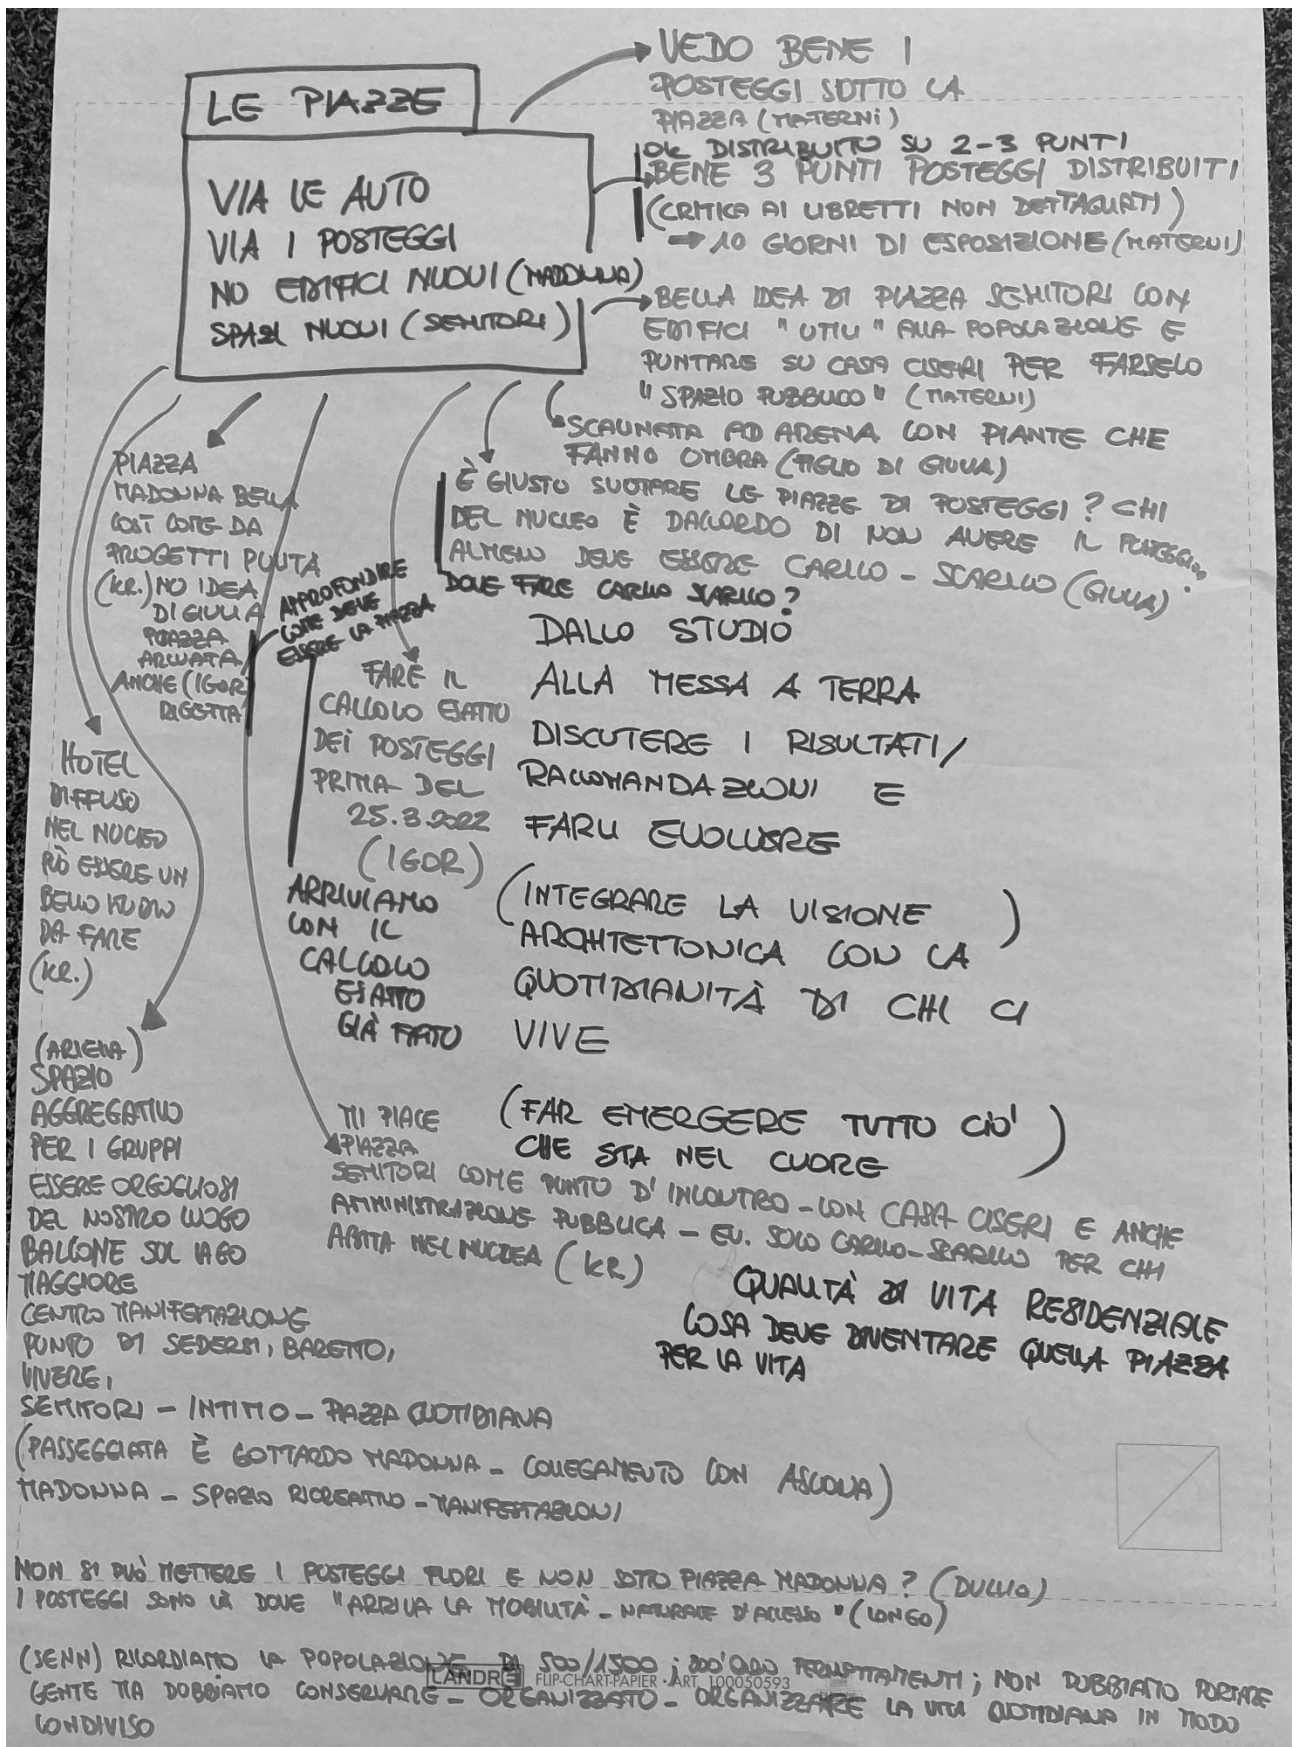 LE PIAZZE
VIA LE AUTO
VIA I POSTEGGI
NO EDIFICI NUOVI (MADONNA)
SPAZI NUOVI (SEMITORI)
VEDO BENE I
POSTEGGI SOTTO LA
PIAZZA (MATERNI)
OK DISTRIBUITO SU 2-3 PUNTI
BENE 3 PUNTI POSTEGGI DISTRIBUITI
(CRITICA AI LIBRETTI NON DETTAGLIATI)
→ 10 GIORNI DI ESPOSIZIONE (MATERNI)
BELLA IDEA DI PIAZZA SEMITORI CON
EDIFICI "UTILI" ALLA POPOLAZIONE E
PUNTARE SU CASA CISERI PER FARSELO
"SPAZIO PUBBLICO" (MATERNI)
SCALINATA AD ARENA CON PIANTE CHE
FANNO OMBRA (FIGLIO DI GIULIA)
È GIUSTO SVOTARE LE PIAZZE DI POSTEGGI? CHI
DEL NUCLEO È DACCORDO DI NON AVERE IL POSTEGGIO,
ALMENO DEVE ESSERE CARICO - SCARICO (GIULIA)
DOVE FARE CARICO SCARICO?
PIAZZA
MADONNA BELLA
COSÌ COME DA
PROGETTI PUNTA
(KR.) NO IDEA
DI GIULIA
PIAZZA
ARCUATA
ANCHE (IGOR)
RIGETTA
APPROFONDIRE
COME DEVE
ESSERE LA PIAZZA
FARE IL
CALCOLO ESATTO
DEI POSTEGGI
PRIMA DEL
25.3.2022
(IGOR)
ARRIVIAMO
CON IL
CALCOLO
ESATTO
GIÀ FATTO
DALLO STUDIO
ALLA MESSA A TERRA
DISCUTERE I RISULTATI/
RACCOMANDAZIONI E
FARLI EVOLVERE
(INTEGRARE LA VISIONE)
ARCHITETTONICA CON LA
QUOTIDIANITÀ DI CHI CI
VIVE
(FAR EMERGERE TUTTO CIO')
CHE STA NEL CUORE
HOTEL
DIFFUSO
NEL NUCLEO
PUÒ ESSERE UN
BELLO
DA FARE
(KR.)
(ARIENA)
SPAZIO
AGGREGATIVO
PER I GRUPPI
ESSERE ORGOGLIOSI
DEL NOSTRO LUOGO
BALCONE SUL LAGO
MAGGIORE
CENTRO MANIFESTAZIONE
PUNTO DI SEDERSI, BARETTO,
VIVERE,
SEMITORI - INTIMO - PIAZZA QUOTIDIANA
(PASSEGGIATA È GOTTARDO MADONNA - COLLEGAMENTO CON ASCONA)
MADONNA - SPAZIO RICREATIVO - MANIFESTAZIONI
MI PIACE
PIAZZA
SEMITORI COME PUNTO D'INCONTRO - CON CASA CISERI E ANCHE
AMMINISTRAZIONE PUBBLICA - EV. SOLO CARICO-SCARICO PER CHI
ABITA NEL NUCLEA (KR)
QUALITÀ DI VITA RESIDENZIALE
COSA DEVE DIVENTARE QUELLA PIAZZA
PER LA VITA
NON SI PUÒ METTERE I POSTEGGI FUORI E NON SOTTO PIAZZA MADONNA? (DUILIO)
I POSTEGGI SONO LÀ DOVE "ARRIVA LA MOBILITÀ - NATURALE D'ACCESSO" (LONGO)
(SENN) RICORDIAMO LA POPOLAZIONE DI 500/1500; 800'000 PERNOTTAMENTI; NON DOBBIAMO PORTARE
GENTE MA DOBBIAMO CONSERVARE - ORGANIZZATO - ORGANIZZARE LA VITA QUOTIDIANA IN MODO
CONDIVISO
LANDRÉ FLIP-CHART-PAPIER · ART. 100050593